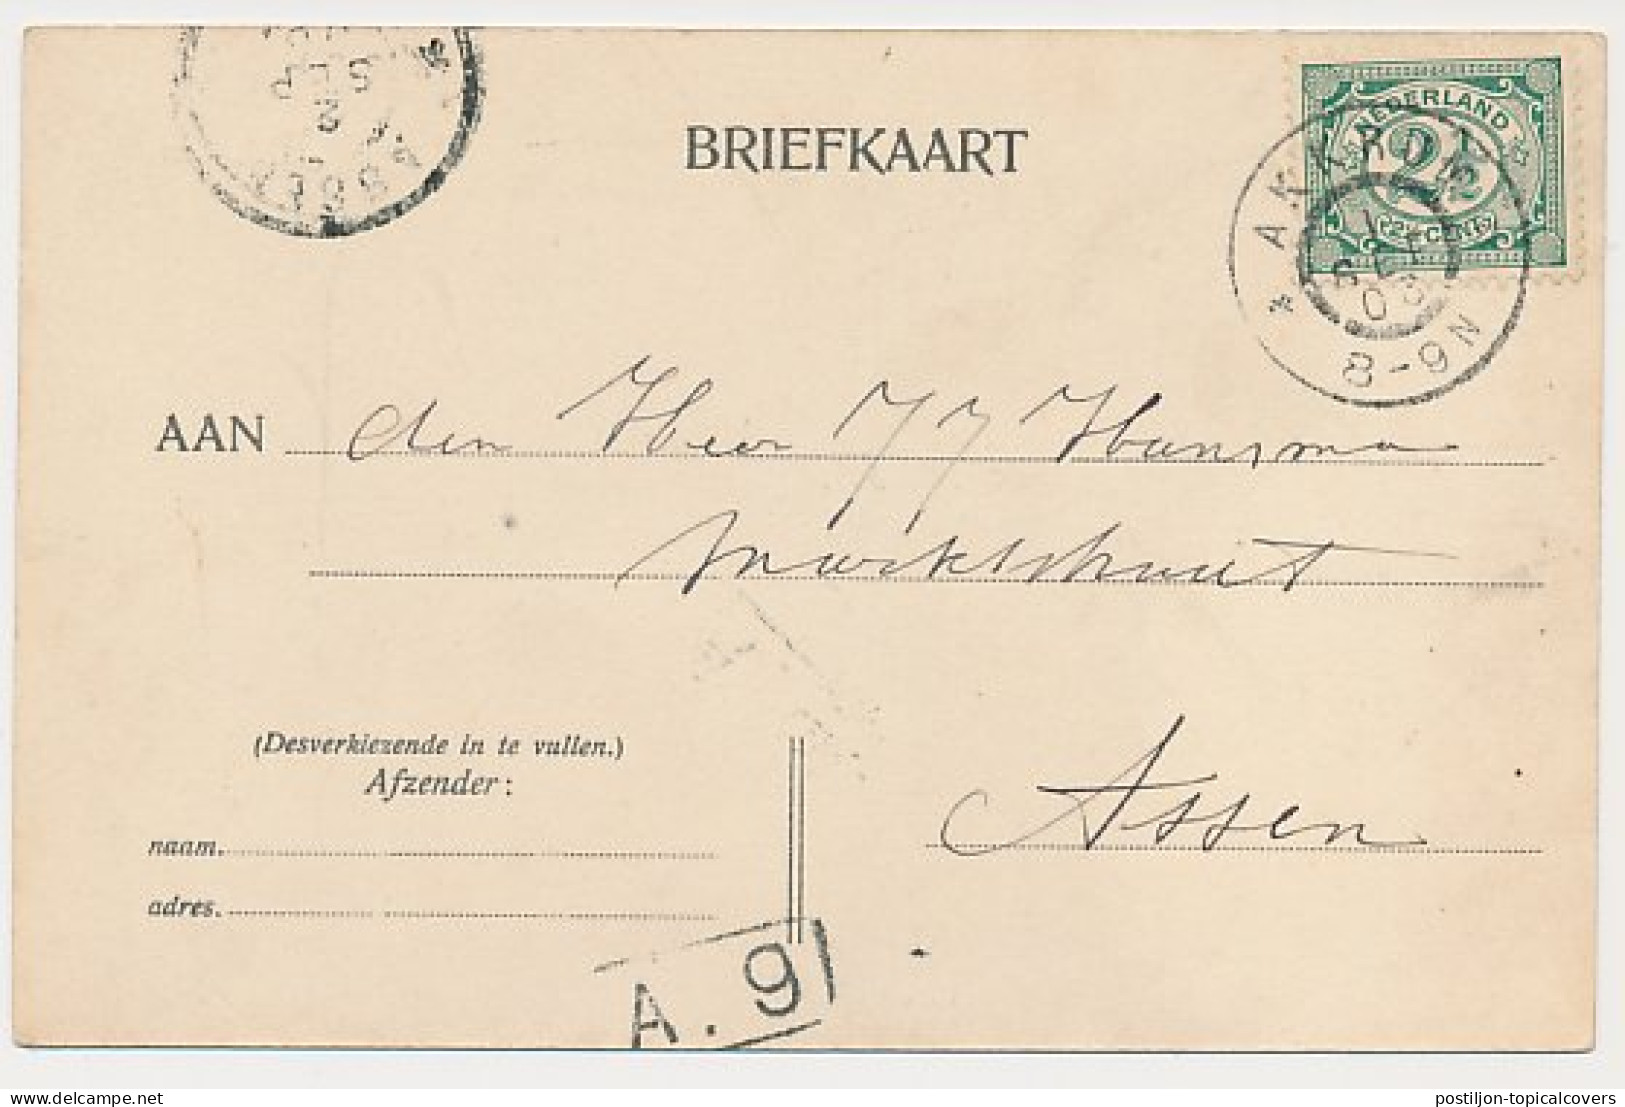 BRIEFKAART
NEDERLAND
2½
2½ CENT
AKKRUM
1
SEP
03
8-9N
2
SEP
ASSEN
AAN den Heer JJ Hansma
Marktstraat
Assen
(Desverkiezende in te vullen.)
Afzender:
naam.
adres.
A. 9
delcampe.net
postiljon-topicalcovers